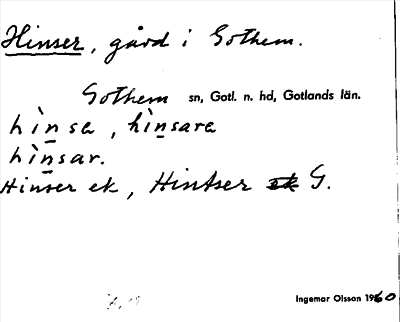 Hinser, gård i Gothem.
Gothem sn, Gotl. n. hd, Gotlands län.
hìnsa, hìnsara
hìnsar.
Hinser ek, Hintser ek G.
Ingemar Olsson 1960